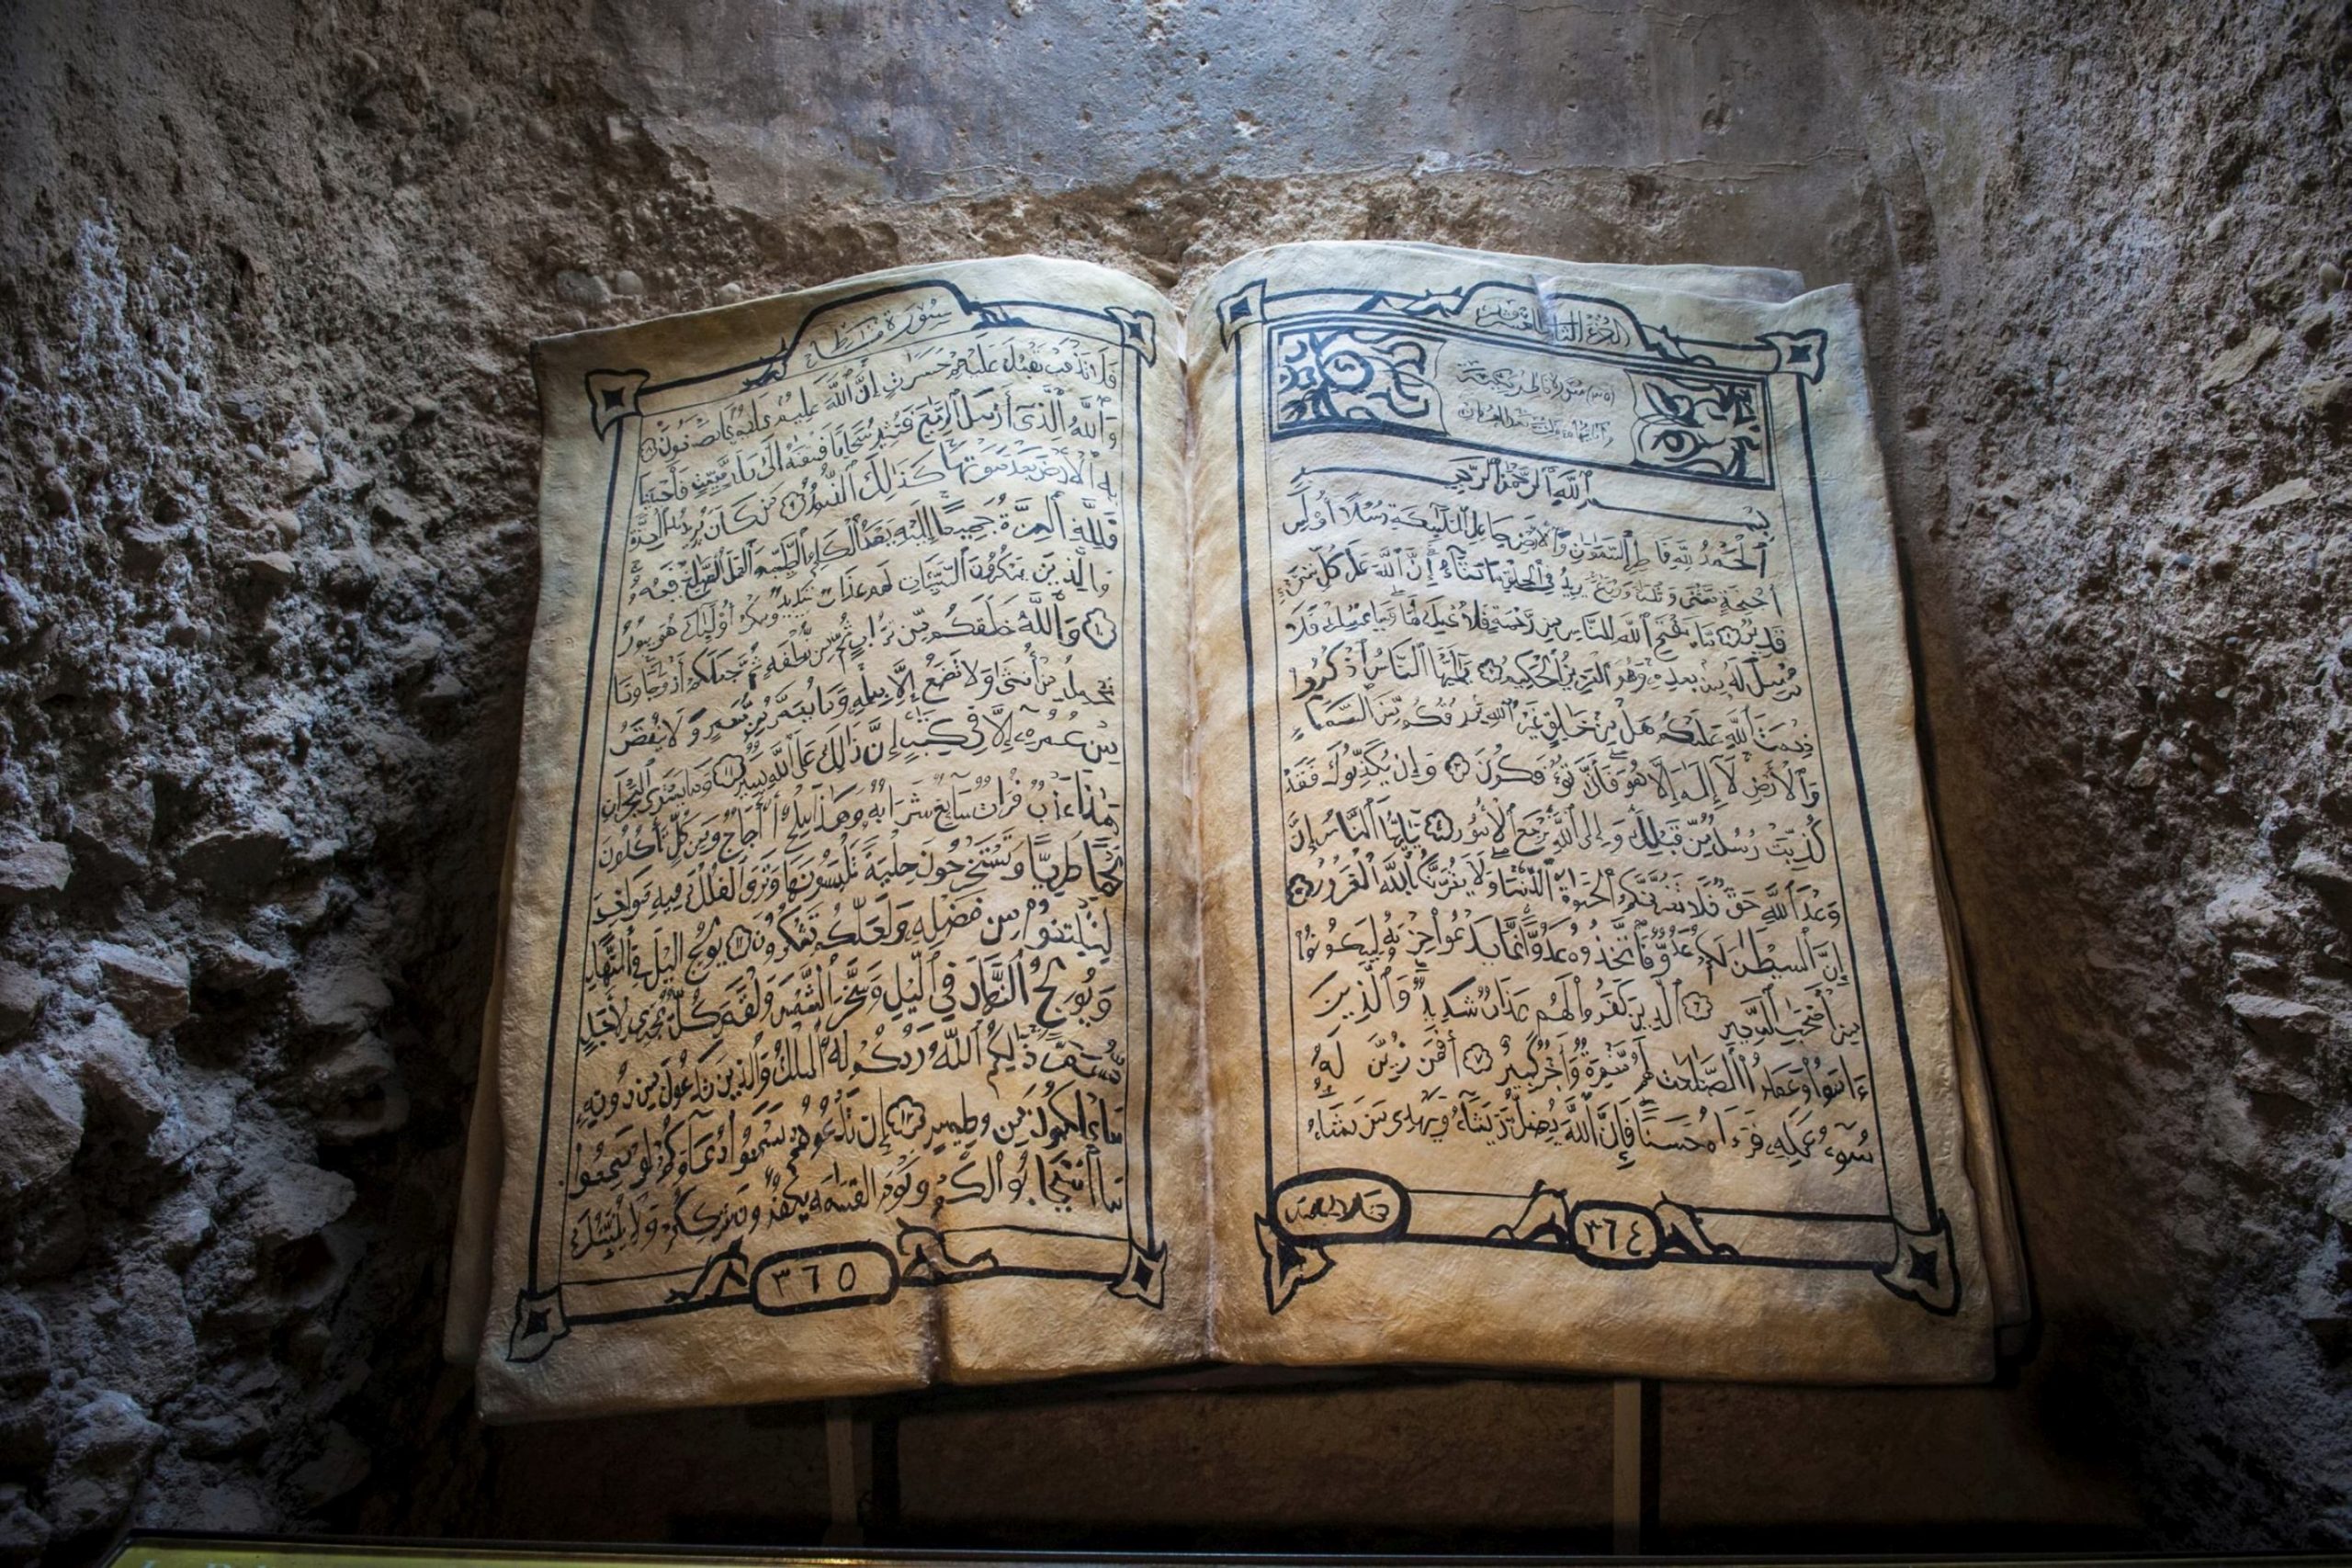 الجزء الثاني والعشرون
(٣٥) سورة فاطر مكية
وآياتها ٤٥ نزلت بعد الفرقان
بسم ٱللَّه ٱلرَّحمٰن ٱلرَّحيم
ٱلْحَمْدُ للَّهِ فَاطِرِ ٱلسَّمَٰوَٰتِ وَٱلْأَرْضِ جَاعِلِ ٱلْمَلَٰٓئِكَةِ رُسُلًا أُو۟لِىٓ
أَجْنِحَةٍ مَّثْنَىٰ وَثُلَٰثَ وَرُبَٰعَ يَزِيدُ فِى ٱلْخَلْقِ مَا يَشَآءُ إِنَّ ٱللَّهَ عَلَىٰ كُلِّ شَىْءٍ
قَدِيرٌ ١ مَّا يَفْتَحِ ٱللَّهُ لِلنَّاسِ مِن رَّحْمَةٍ فَلَا مُمْسِكَ لَهَا وَمَا يُمْسِكْ فَلَا
مُرْسِلَ لَهُۥ مِنۢ بَعْدِهِۦ وَهُوَ ٱلْعَزِيزُ ٱلْحَكِيمُ ٢ يَٰٓأَيُّهَا ٱلنَّاسُ ٱذْكُرُوا۟
نِعْمَتَ ٱللَّهِ عَلَيْكُمْ هَلْ مِنْ خَٰلِقٍ غَيْرُ ٱللَّهِ يَرْزُقُكُم مِّنَ ٱلسَّمَآءِ
وَٱلْأَرْضِ لَآ إِلَٰهَ إِلَّا هُوَ فَأَنَّىٰ تُؤْفَكُونَ ٣ وَإِن يُكَذِّبُوكَ فَقَدْ
كُذِّبَتْ رُسُلٌ مِّن قَبْلِكَ وَإِلَى ٱللَّهِ تُرْجَعُ ٱلْأُمُورُ ٤ يَٰٓأَيُّهَا ٱلنَّاسُ إِنَّ
وَعْدَ ٱللَّهِ حَقٌّ فَلَا تَغُرَّنَّكُمُ ٱلْحَيَوٰةُ ٱلدُّنْيَا وَلَا يَغُرَّنَّكُم بِٱللَّهِ ٱلْغَرُورُ ٥
إِنَّ ٱلشَّيْطَٰنَ لَكُمْ عَدُوٌّ فَٱتَّخِذُوهُ عَدُوًّا إِنَّمَا يَدْعُوا۟ حِزْبَهُۥ لِيَكُونُوا۟
مِنْ أَصْحَٰبِ ٱلسَّعِيرِ ٦ ٱلَّذِينَ كَفَرُوا۟ لَهُمْ عَذَابٌ شَدِيدٌ وَٱلَّذِينَ
ءَامَنُوا۟ وَعَمِلُوا۟ ٱلصَّٰلِحَٰتِ لَهُم مَّغْفِرَةٌ وَأَجْرٌ كَبِيرٌ ٧ أَفَمَن زُيِّنَ لَهُۥ
سُوٓءُ عَمَلِهِۦ فَرَءَاهُ حَسَنًا فَإِنَّ ٱللَّهَ يُضِلُّ مَن يَشَآءُ وَيَهْدِى مَن يَشَآءُ
٣٦٤
سورة فاطر
فَلَا تَذْهَبْ نَفْسُكَ عَلَيْهِمْ حَسَرَٰتٍ إِنَّ ٱللَّهَ عَلِيمٌۢ بِمَا يَصْنَعُونَ ٨
وَٱللَّهُ ٱلَّذِىٓ أَرْسَلَ ٱلرِّيَٰحَ فَتُثِيرُ سَحَابًا فَسُقْنَٰهُ إِلَىٰ بَلَدٍ مَّيِّتٍ فَأَحْيَيْنَا
بِهِ ٱلْأَرْضَ بَعْدَ مَوْتِهَا كَذَٰلِكَ ٱلنُّشُورُ ٩ مَن كَانَ يُرِيدُ ٱلْعِزَّةَ
فَلِلَّهِ ٱلْعِزَّةُ جَمِيعًا إِلَيْهِ يَصْعَدُ ٱلْكَلِمُ ٱلطَّيِّبُ وَٱلْعَمَلُ ٱلصَّٰلِحُ يَرْفَعُهُۥ
وَٱلَّذِينَ يَمْكُرُونَ ٱلسَّيِّـَٔاتِ لَهُمْ عَذَابٌ شَدِيدٌ وَمَكْرُ أُو۟لَٰٓئِكَ هُوَ يَبُورُ
١٠ وَٱللَّهُ خَلَقَكُم مِّن تُرَابٍ ثُمَّ مِن نُّطْفَةٍ ثُمَّ جَعَلَكُمْ أَزْوَٰجًا وَمَا
تَحْمِلُ مِنْ أُنثَىٰ وَلَا تَضَعُ إِلَّا بِعِلْمِهِۦ وَمَا يُعَمَّرُ مِن مُّعَمَّرٍ وَلَا يُنقَصُ
مِنْ عُمُرِهِۦٓ إِلَّا فِى كِتَٰبٍ إِنَّ ذَٰلِكَ عَلَى ٱللَّهِ يَسِيرٌ ١١ وَمَا يَسْتَوِى ٱلْبَحْرَانِ
هَٰذَا عَذْبٌ فُرَاتٌ سَآئِغٌ شَرَابُهُۥ وَهَٰذَا مِلْحٌ أُجَاجٌ وَمِن كُلٍّ تَأْكُلُونَ
لَحْمًا طَرِيًّا وَتَسْتَخْرِجُونَ حِلْيَةً تَلْبَسُونَهَا وَتَرَى ٱلْفُلْكَ فِيهِ مَوَاخِرَ
لِتَبْتَغُوا۟ مِن فَضْلِهِۦ وَلَعَلَّكُمْ تَشْكُرُونَ ١٢ يُولِجُ ٱلَّيْلَ فِى ٱلنَّهَارِ
وَيُولِجُ ٱلنَّهَارَ فِى ٱلَّيْلِ وَسَخَّرَ ٱلشَّمْسَ وَٱلْقَمَرَ كُلٌّ يَجْرِى لِأَجَلٍ
مُّسَمًّى ذَٰلِكُمُ ٱللَّهُ رَبُّكُمْ لَهُ ٱلْمُلْكُ وَٱلَّذِينَ تَدْعُونَ مِن دُونِهِۦ
مَا يَمْلِكُونَ مِن قِطْمِيرٍ ١٣ إِن تَدْعُوهُمْ لَا يَسْمَعُوا۟ دُعَآءَكُمْ وَلَوْ سَمِعُوا۟
مَا ٱسْتَجَابُوا۟ لَكُمْ وَيَوْمَ ٱلْقِيَٰمَةِ يَكْفُرُونَ بِشِرْكِكُمْ وَلَا يُنَبِّئُكَ
٣٦٥